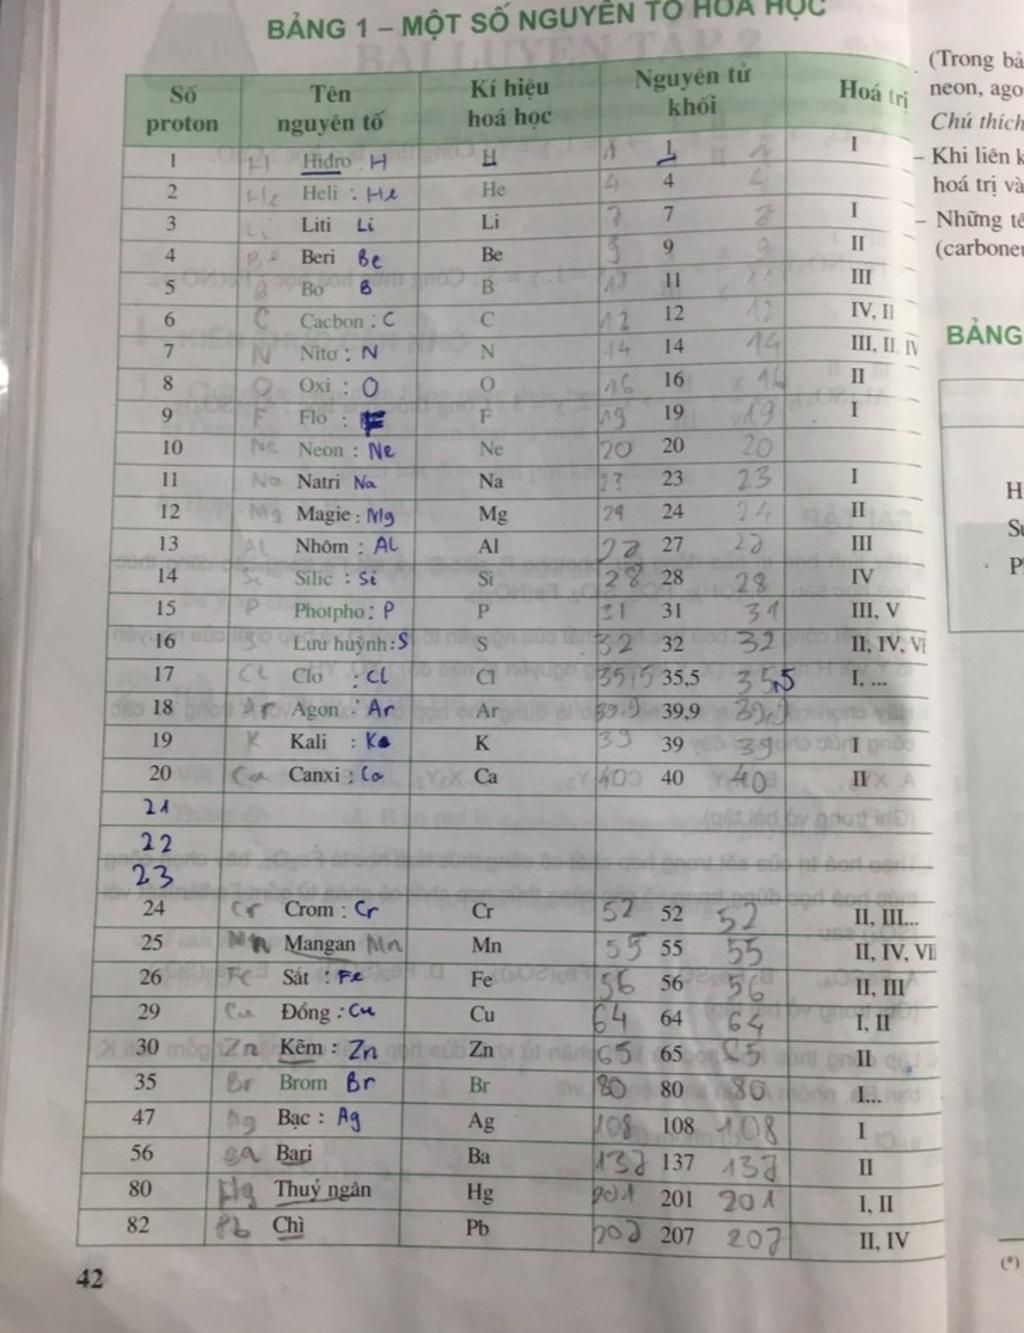 BẢNG 1 – MỘT SỐ NGUYÊN TỐ HOÁ HỌC
Số proton Tên nguyên tố Kí hiệu hoá học Nguyên tử khối Hoá trị
1 H Hiđro H H 1 1 1 I
2 He Heli : He He 4 4 4
3 Li Liti Li Li 7 7 7 I
4 Be Beri Be Be 9 9 9 II
5 B Bo B B 11 11 11 III
6 C Cacbon : C C 12 12 12 IV, II
7 N Nitơ : N N 14 14 14 III, II, IV
8 O Oxi : O O 16 16 16 II
9 F Flo : F F 19 19 19 I
10 Ne Neon : Ne Ne 20 20 20
11 Na Natri Na Na 23 23 23 I
12 Mg Magie : Mg Mg 24 24 24 II
13 Al Nhôm : Al Al 27 27 27 III
14 Si Silic : Si Si 28 28 28 IV
15 P Photpho : P P 31 31 31 III, V
16 S Lưu huỳnh : S S 32 32 32 II, IV, VI
17 Cl Clo : Cl Cl 35,5 35,5 35,5 I, ...
18 Ar Agon : Ar Ar 39,9 39,9 39,9
19 K Kali : K K 39 39 39 I
20 Ca Canxi : Ca Ca 40 40 40 II
21
22
23
24 Cr Crom : Cr Cr 52 52 52 II, III...
25 Mn Mangan Mn Mn 55 55 55 II, IV, VII
26 Fe Sắt : Fe Fe 56 56 56 II, III
29 Cu Đồng : Cu Cu 64 64 64 I, II
30 Zn Kẽm : Zn Zn 65 65 65 II
35 Br Brom Br Br 80 80 80 I...
47 Ag Bạc : Ag Ag 108 108 108 I
56 Ba Bari Ba 137 137 137 II
80 Hg Thuỷ ngân Hg 201 201 201 I, II
82 Pb Chì Pb 207 207 207 II, IV
42
(Trong
neon,
Chú thích
– Khi liên
hoá trị và
– Những
BẢNG
H
P
(*)